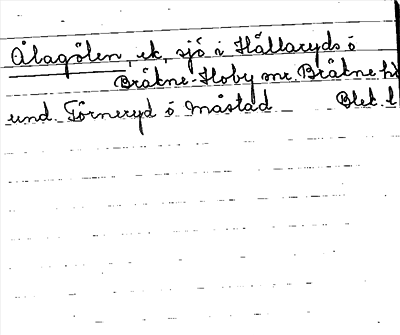 Ålagölen, ek, sjö i Hällaryds ö
Bräkne-Hoby snr. Bräkne hd
und. Törneryd ö Måstad Blek. l